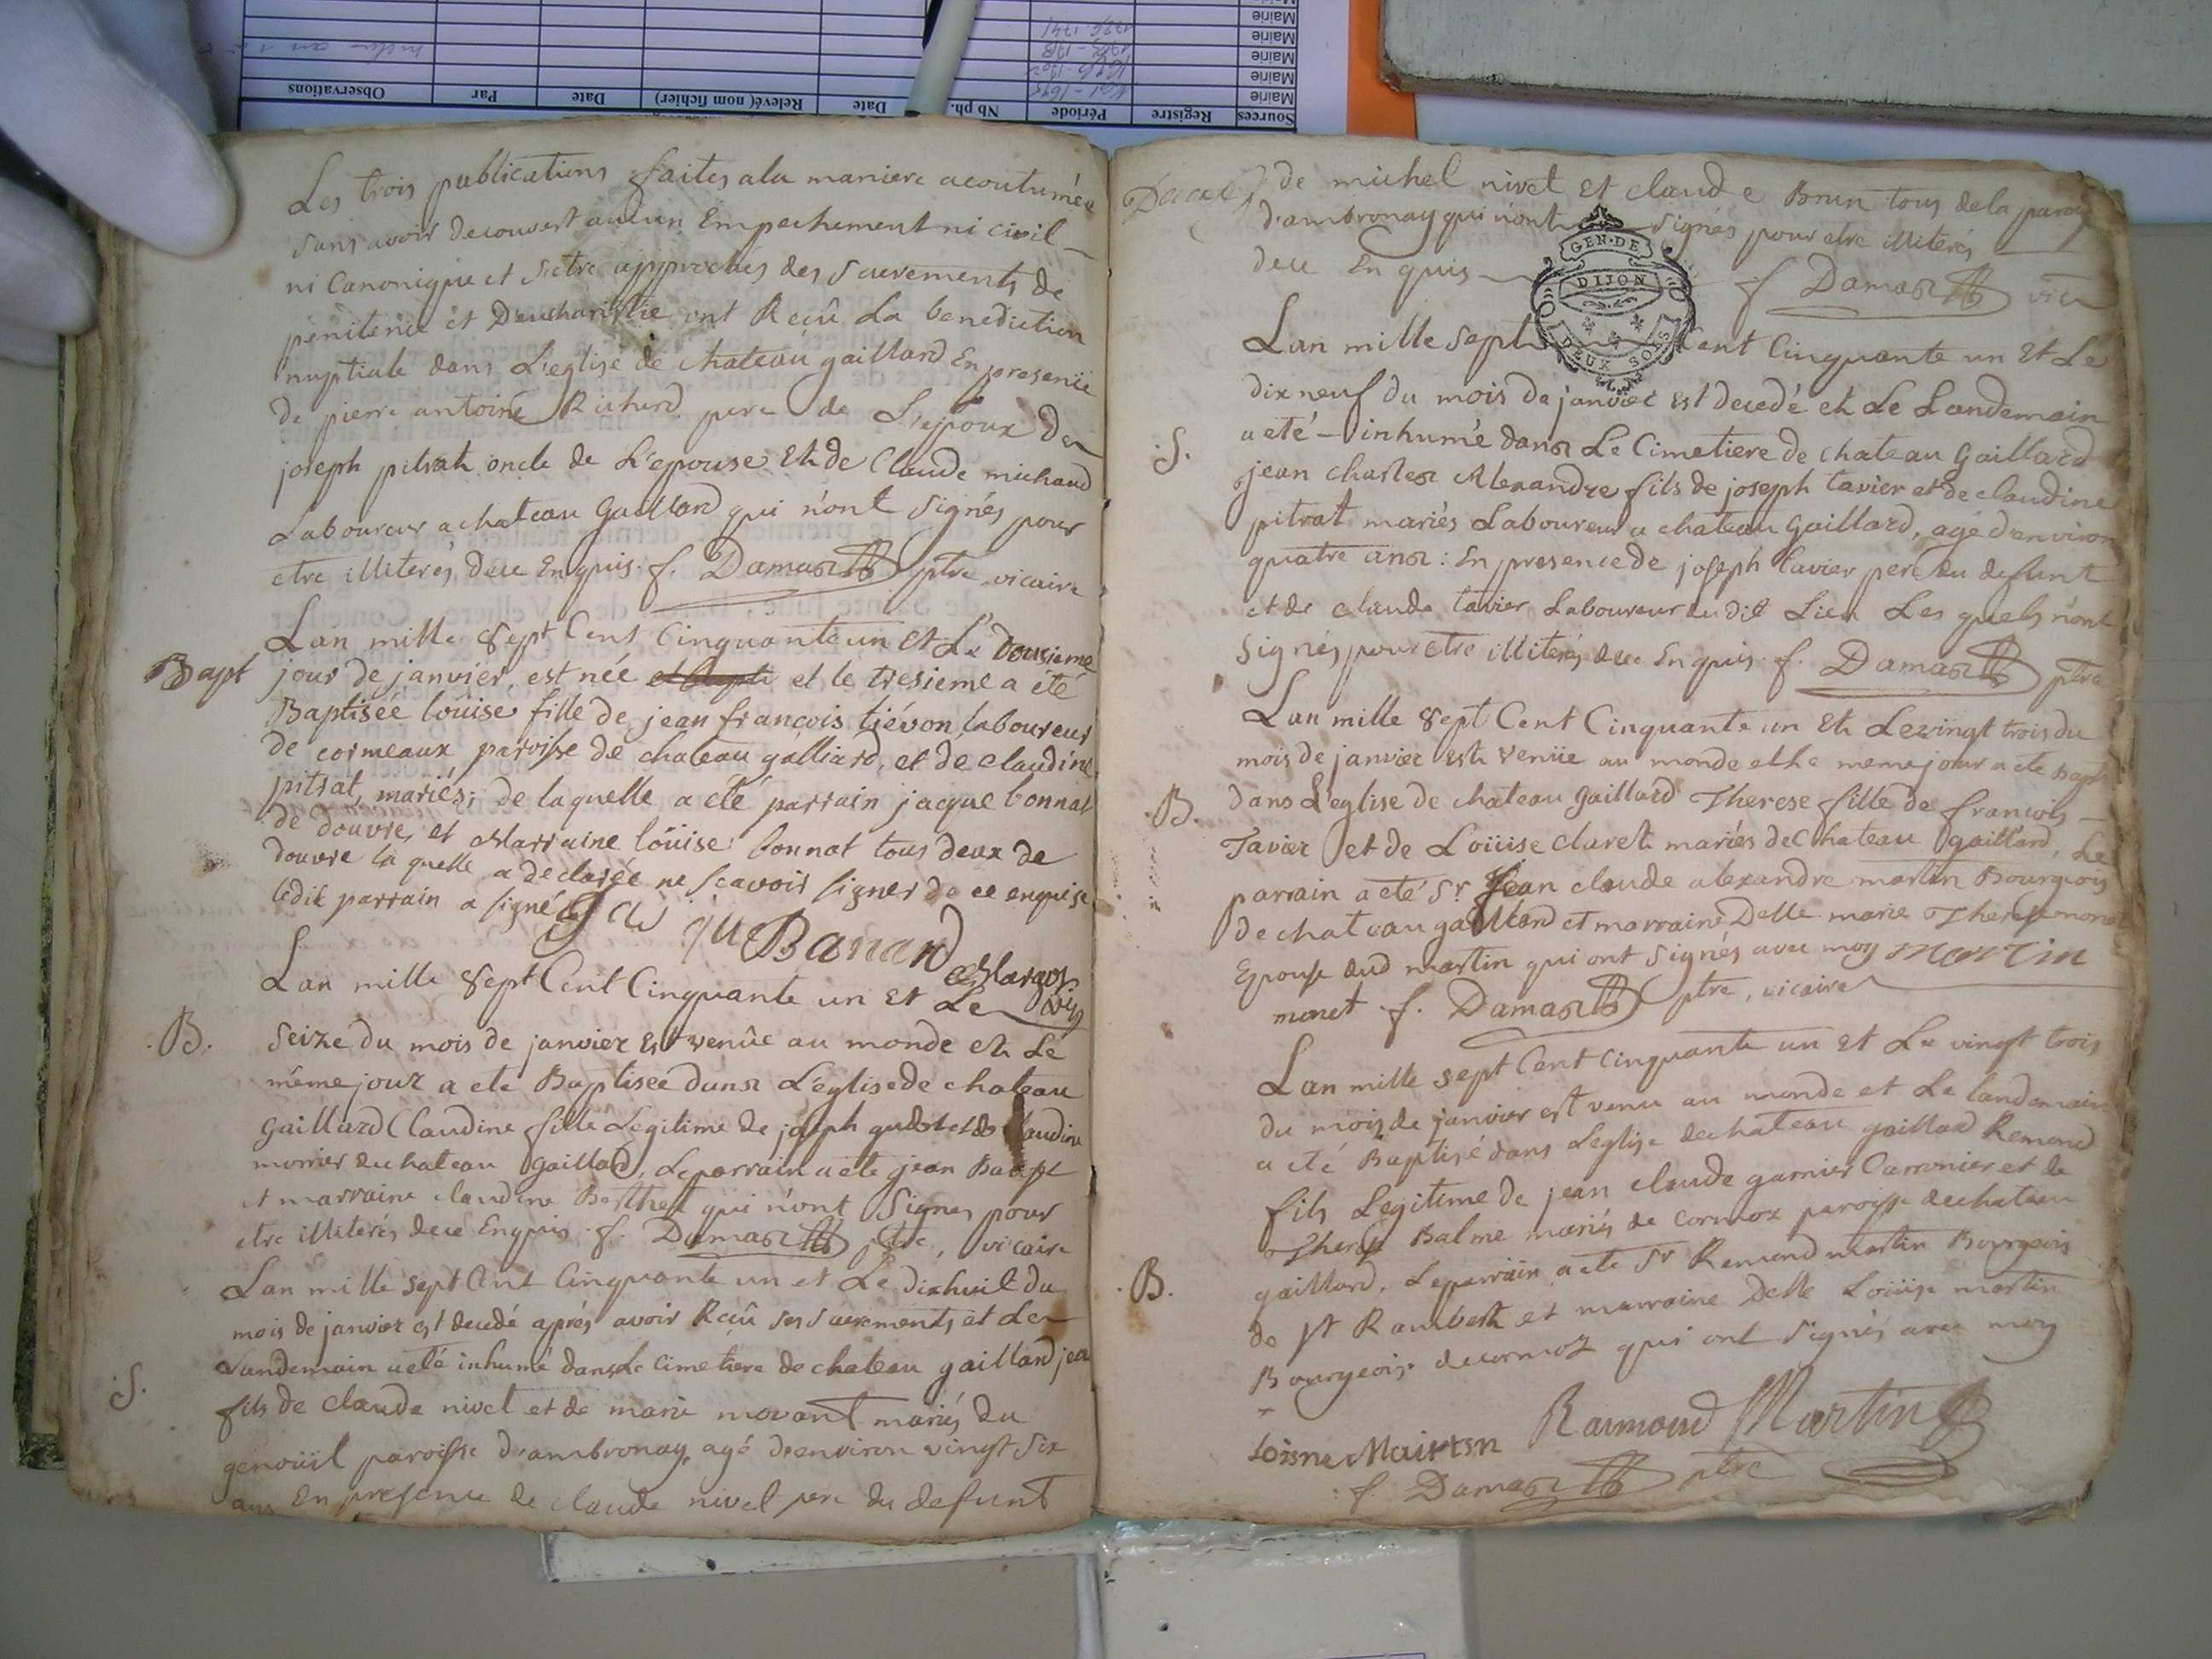 Les trois publications faites a la maniere acoutumée
sans avoir decouvert aucun Empechement ni civil
ni Canonique et s'etre approchés des sacrements de
penitence et D'eucharistie ont Reçû La benediction
nuptiale dans L'eglise de chateau gaillard En presence
de pierre antoine Richerd pere de L'epoux De
joseph pitrat oncle de L'epouse Et de Claude michaud
Laboureur a chateau Gaillard qui n'ont signés pour
etre illiterés, de ce Enquis. f. Damas ptre vicaire
Lan mille sept Cent Cinquante un Et Le Dousieme
Bapt
jour de janvier, est née et le tresieme a été
Baptisée loüise fille de jean françois tiévon laboureur
de cormeaux paroisse de chateau galliard, et de claudine
pitrat, mariés; de laquelle a été parrain jacque bonnat
de douvre, et Marraine loüise bonnat tous deux de
douvre la quelle a declarée ne scavoir signer de ce enquise
ledit parrain a signé
Lan mille sept Cent Cinquante un Et Le
B.
seize du mois de janvier Est venüe au monde et Le
même jour a ete Baptisée dans L'eglise de chateau
Gaillard Claudine fille Legitime de joseph et de Claudine
morier du chateau Gaillard, Le parrain a ete jean Bapt
et marraine claudine Berthet qui n'ont signes pour
etre illiterés de ce Enquis. f. Damas ptre, vicaire
Lan mille sept Cent Cinquante un et Le dixhuit du
mois de janvier est decedé aprés avoir Reçû ses sacrements et Le
S.
Landemain a eté inhumé dans Le Cimetiere de chateau gaillard jean
fils de claude nivet et de marie morant mariés du
genoüil paroisse d'ambronay, agé d'environ vingt six
ans En presence de claude nivet pere du defunt
de michel nivet Et claude Brun tous de la paroisse
d'ambronay qui n'ont signés pour etre illiterés
de ce Enquis f Damas vic
GEN·DE
DIJON
DEUX SOLS
Lan mille sept Cent Cinquante un Et Le
dix neuf du mois de janvier est decedé et Le Landemain
S.
a eté inhumé dans Le Cimetiere de chateau Gaillard
jean charles Alexandre fils de joseph tavier et de claudine
pitrat mariés Laboureur a chateau Gaillard, agé d'environ
quatre ans: En presence de joseph tavier pere du defunt
et de claude tavier Laboureur du dit Lieu Les quels n'ont
signés pour etre illiterés de ce Enquis. f. Damas ptre
Lan mille sept Cent Cinquante un Et Le vingt trois du
mois de janvier est venüe au monde et le meme jour a ete bapt
B.
dans L'eglise de chateau Gaillard Therese fille de francois
Tavier et de Loüise claret mariés de Chateau gaillard, Le
parrain a eté Sr. Jean claude alexandre martin Bourgeois
de chateau gaillard et marraine Delle marie Therese monet
Epouse dud martin qui ont signés avec moy martin
monet f. Damas ptre, vicaire
Lan mille sept Cent Cinquante un Et Le vingt trois
du mois de janvier est venu au monde et Le landemain
a eté Baptisé dans L'eglise de chateau gaillard Remond
fils Legitime de jean claude garnier et de
Therese Balme mariés de cormoz paroisse de chateau
B.
gaillard, Le parrain a ete Sr Remond martin Bourgeois
de St Rambert et marraine Delle Loüise martin
Bourgeoise de cormoz qui ont signés avec moy
Raimond Martin
f. Damas ptre
Sources
Registre
Période
Nb ph.
Date
Relevé( nom fichier)
Date
Par
Observations
Mairie
Mairie
Mairie
Mairie
Mairie